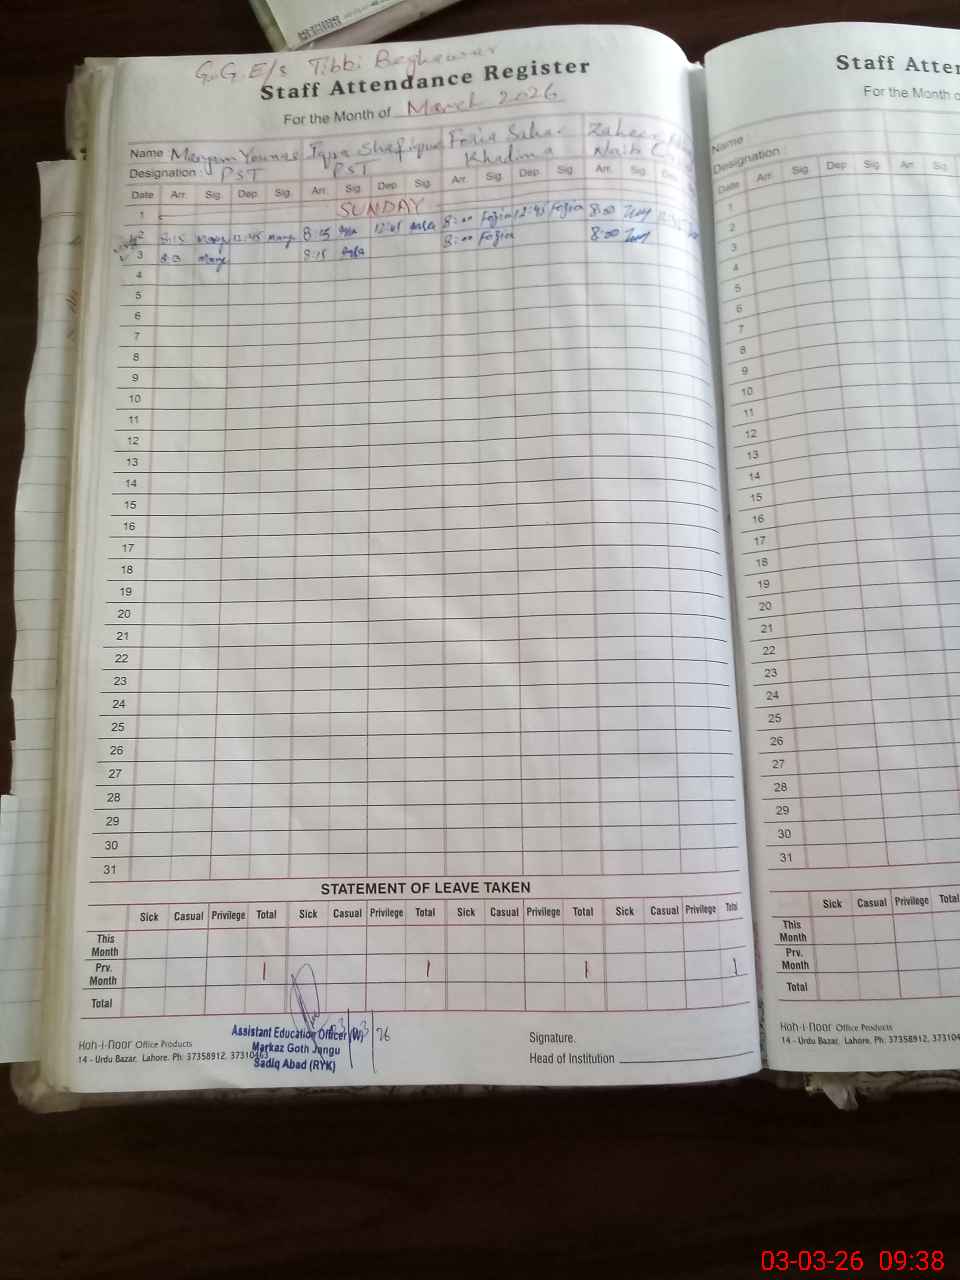 G.G.E/s Tibbi
Staff Attendance Register
For the Month of March 2026
Name Maryam Younas Iqra Shafique Fozia Sahar
Khadma Naib
Designation: PST PST
Date Arr. Sig. Dep. Sig. Arr. Sig. Dep. Sig. Arr. Sig. Dep. Sig. Arr. Sig.
1 SUNDAY
2 8:15 12:45 8:15 12:45 8:00 Fozia 12:45 Fozia 8:00
3 8:15 8:00 Fozia 8:00
4
5
6
7
8
9
10
11
12
13
14
15
16
17
18
19
20
21
22
23
24
25
26
27
28
29
30
31
STATEMENT OF LEAVE TAKEN
Sick Casual Privilege Total Sick Casual Privilege Total Sick Casual Privilege Total Sick Casual Privilege Total
This Month
Prv. Month 1 1 1 1
Total
Assistant Education Officer (W)
Markaz Goth Jangu
Sadiq Abad (RYK)
Signature.
Head of Institution
Koh-i-Noor Office Products
14 - Urdu Bazar, Lahore. Ph: 37358912, 37310463
Staff Atter
For the Month o
Name :
Designation :
Date Arr. Sig. Dep. Sig. Arr. Sig.
1
2
3
4
5
6
7
8
9
10
11
12
13
14
15
16
17
18
19
20
21
22
23
24
25
26
27
28
29
30
31
Sick Casual Privilege Total
This Month
Prv. Month
Total
Koh-i-Noor Office Products
14 - Urdu Bazar, Lahore. Ph: 37358912,
03-03-26 09:38